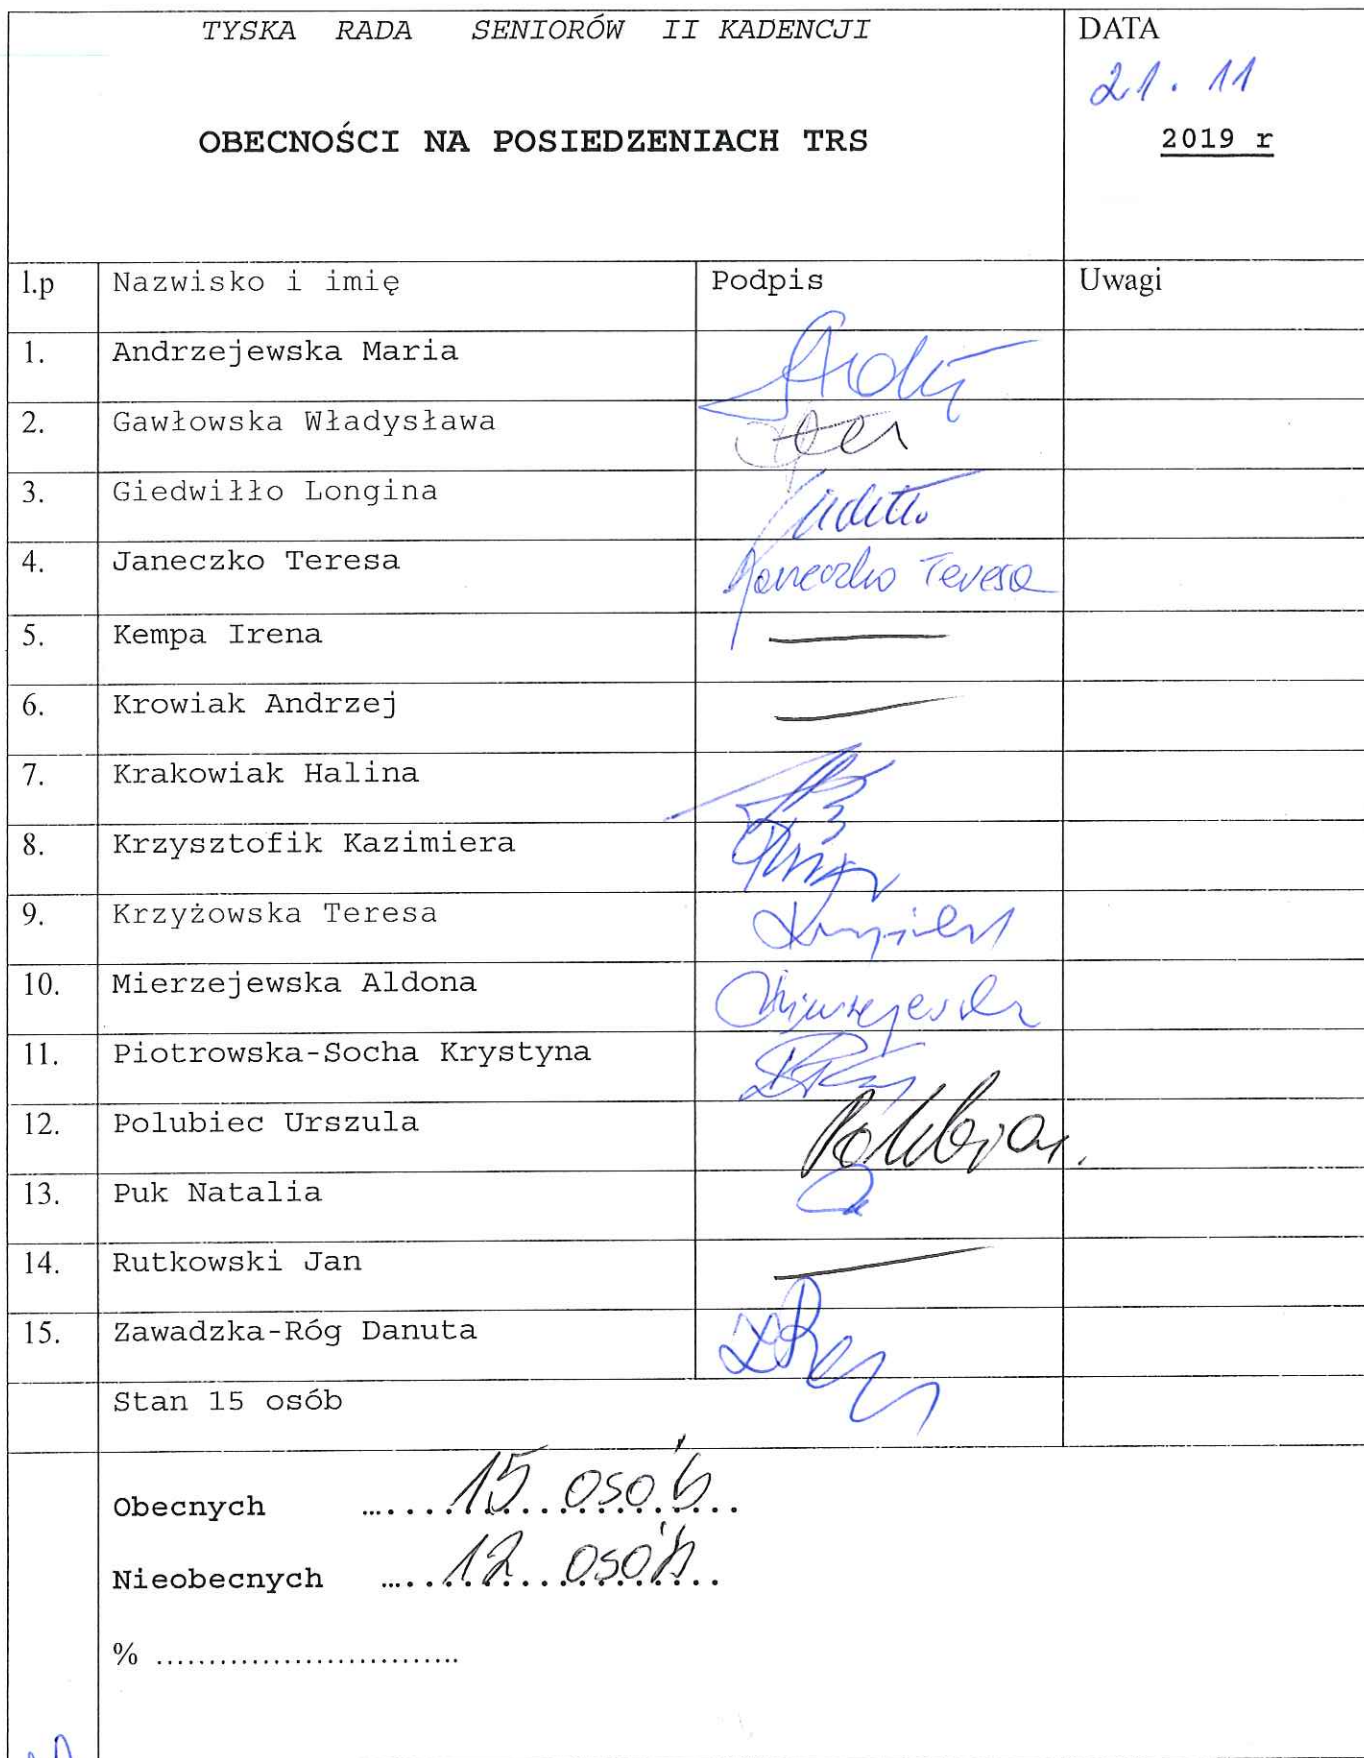 TYSKA RADA SENIORÓW II KADENCJI
DATA
21. 11
OBECNOŚCI NA POSIEDZENIACH TRS
2019 r
l.p Nazwisko i imię Podpis Uwagi
1. Andrzejewska Maria
2. Gawłowska Władysława
3. Giedwiłło Longina
4. Janeczko Teresa Janeczko Teresa
5. Kempa Irena
6. Krowiak Andrzej
7. Krakowiak Halina
8. Krzysztofik Kazimiera
9. Krzyżowska Teresa
10. Mierzejewska Aldona
11. Piotrowska-Socha Krystyna
12. Polubiec Urszula
13. Puk Natalia
14. Rutkowski Jan
15. Zawadzka-Róg Danuta
Stan 15 osób
Obecnych ........15 osób........
Nieobecnych ........12 osób........
% .............................